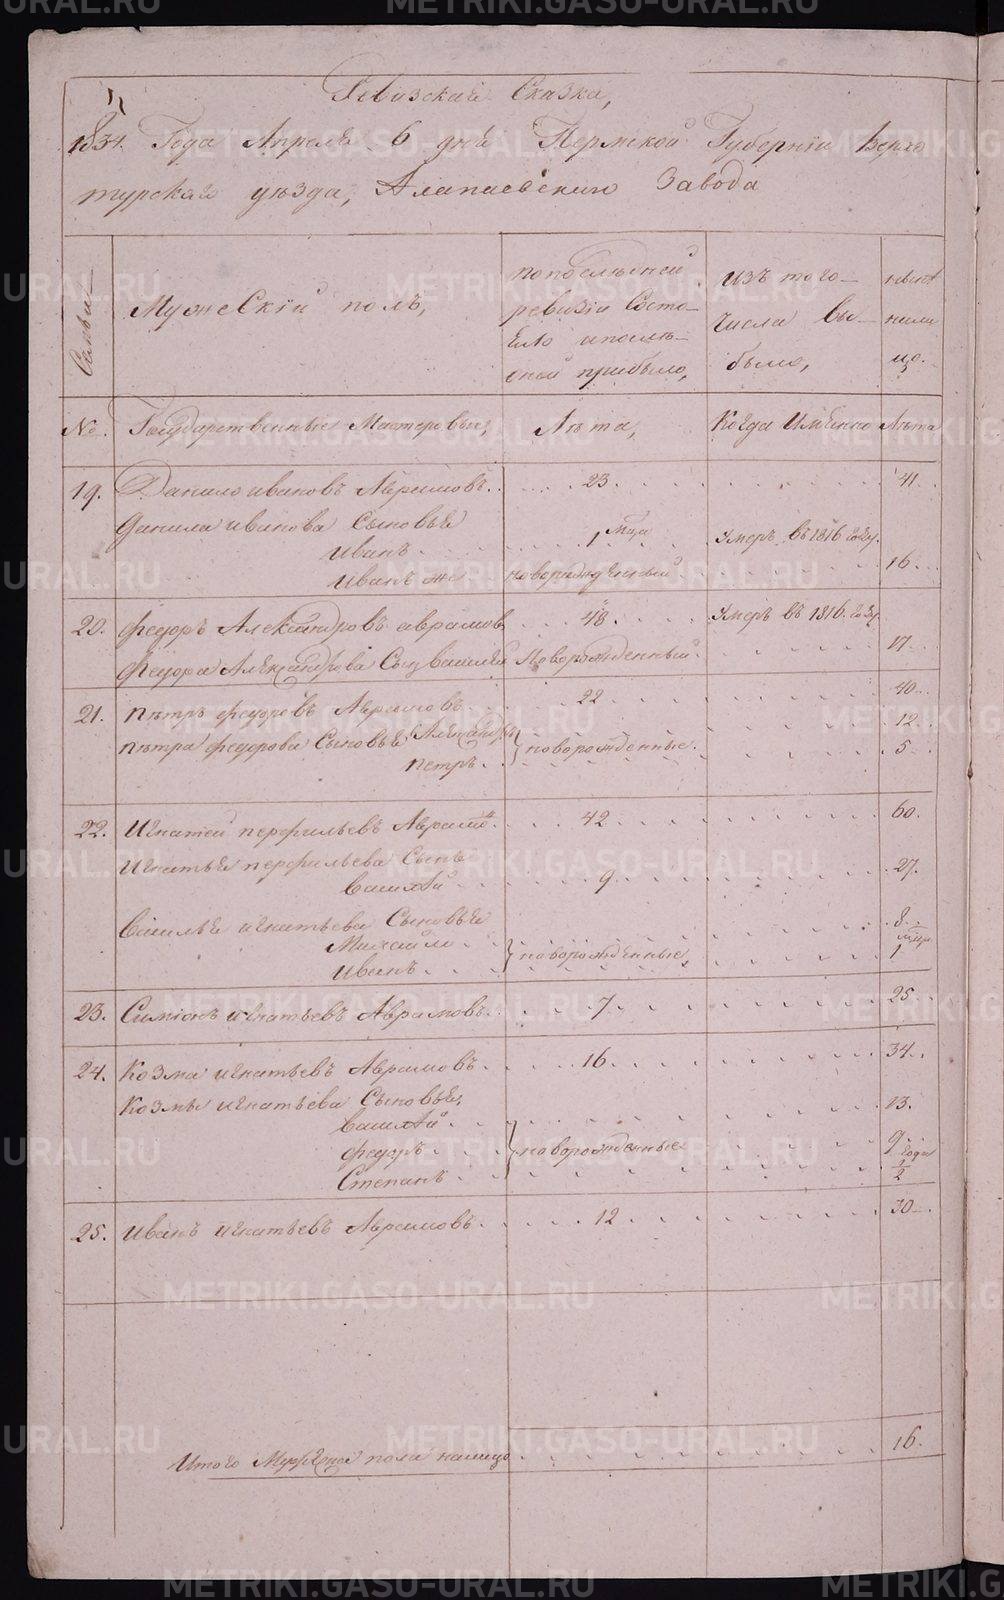 Ревизская Сказка,
1834. Года Апреля 6 дня Пермской Губернiи Верхо
турскаго уѣзда, Алапаевскаго Завода
Семьи
Мужескiй полъ,
по послѣдней
ревизiи Состо-
яло и послѣ-
оной прибыло,
изъ того-
Числа вы-
было,
нынѣ
нали
цо.
№. Государственные Мастеровые, Лѣта, Когда Имянно Лѣта
19. Данило ивановъ Аврамовъ. 23. 41.
Данила иванова Сыновья
иванъ 1 Умеръ въ 1816 году.
иванъ же новорожденный. 16.
20. федоръ Александровъ аврамов 48. Умеръ въ 1816. году.
Федора Александрова Сын василей Новорожденный. 17.
21. Пѣтръ федоровъ Аврамовъ 22 40.
пѣтра федорова Сыновья Александръ новорожденные. 12.
петръ. 5.
22. Игнатей перфильевъ Аврамов. 42. 60.
Игнатья перфильева Сынъ
василей 9. 27.
Василья игнатьева Сыновья
Михайло 8.
иванъ. новорожденные, 1
23. Симiонъ игнатьевъ Аврамовъ. 7. 25
24. Козма игнатьевъ Аврамовъ. 16. 34.
Козмы игнатьева Сыновья,
василей. 13.
федоръ новорожденные 9.
Степанъ года 1/2
25. иванъ игнатьевъ Аврамовъ. 12 30.
Итого Мужеска пола налицо 16.
METRIKI.GASO-URAL.RU